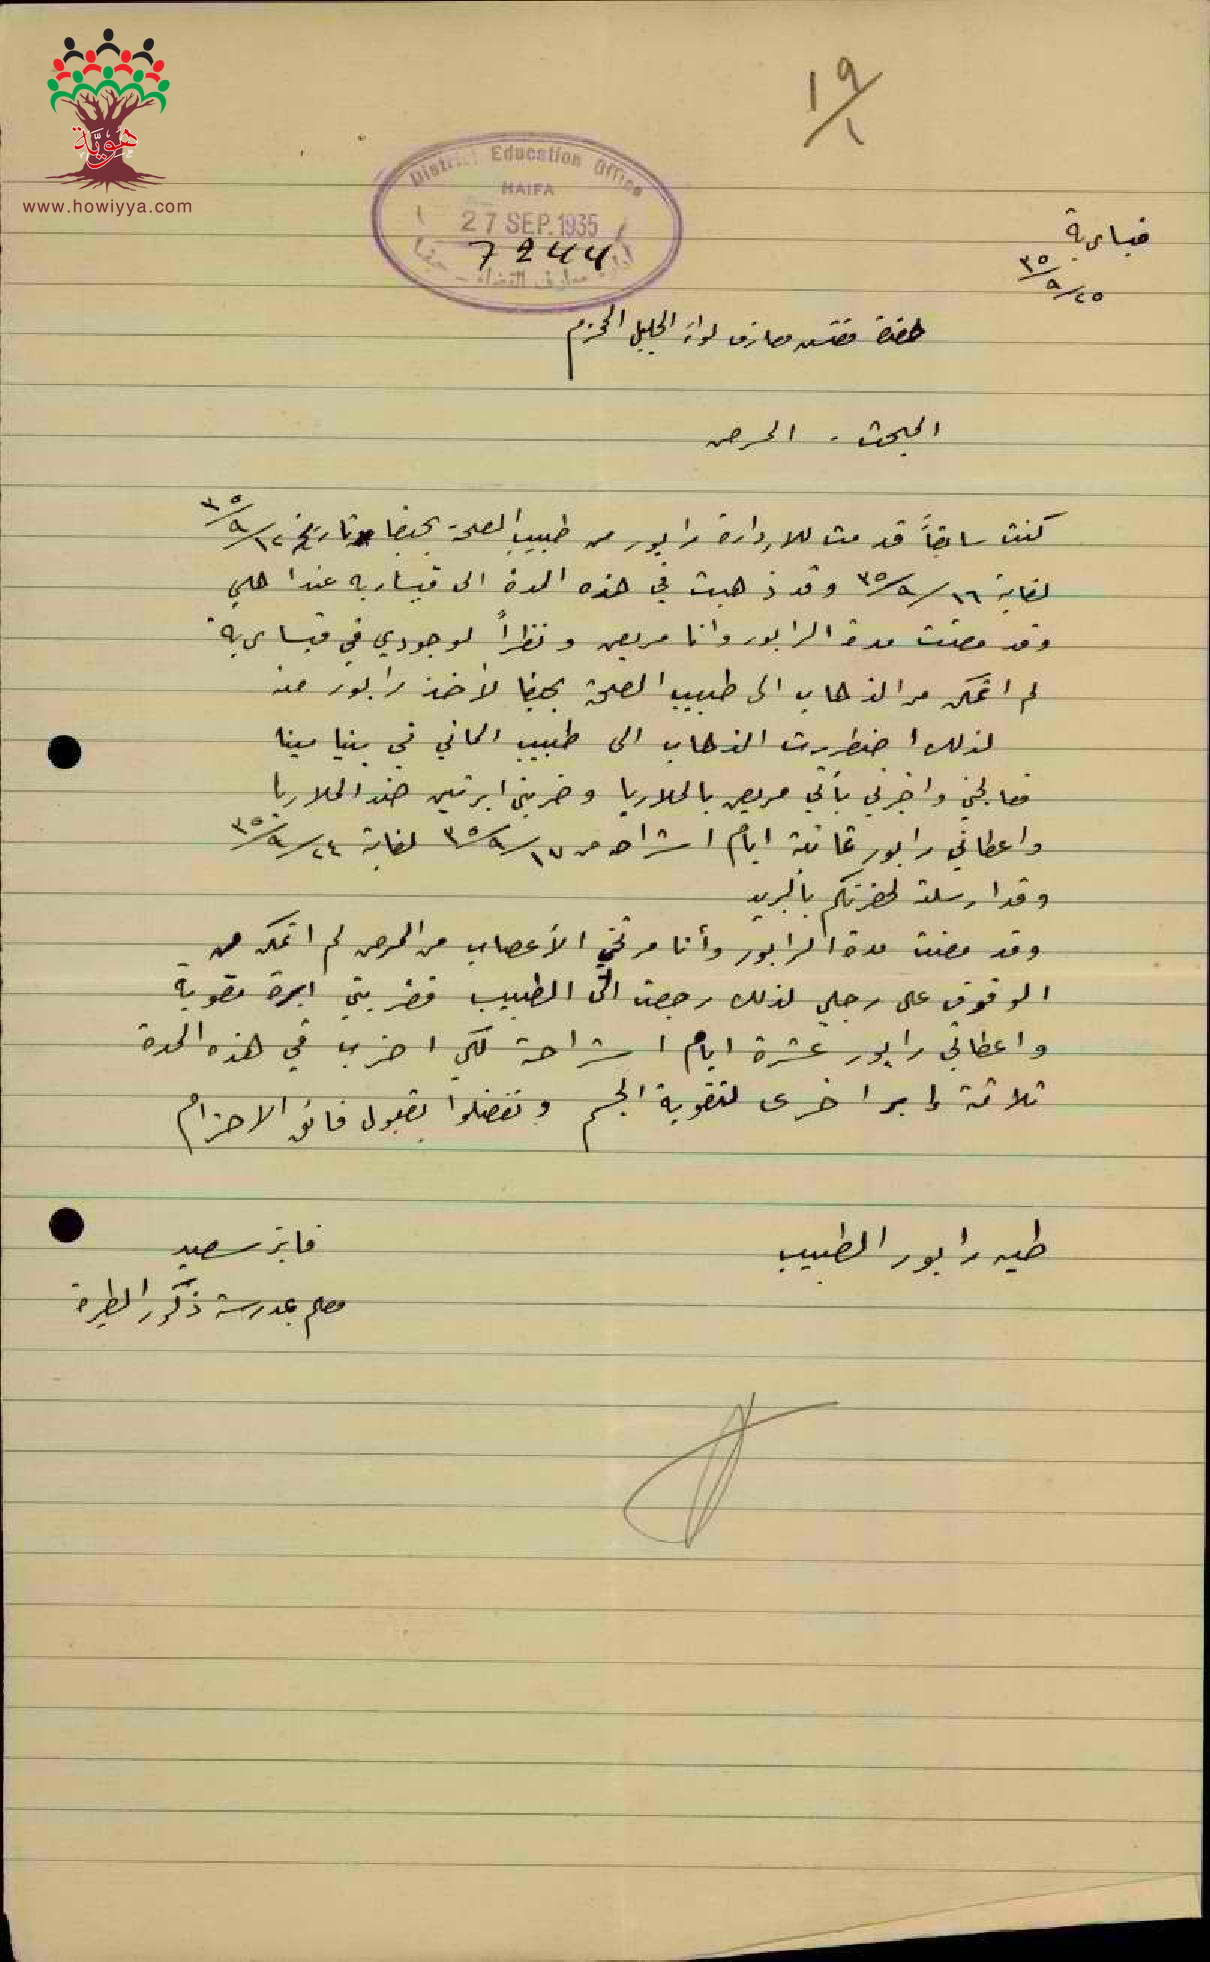 هوية
www.howiyya.com
١٩/١
District Education Office
HAIFA
27 SEP. 1935
7244
ادارة معارف القضاء - حيفا
قيسارية
٢٥/٩/٣٥
حضرة مفتش معارف لواء الجليل المحترم
المبحث . المرض
كنت سابقاً قدمت للادارة رابور من طبيب الصحة بحيفا تاريخ ١٢/٩/٣٥
لغاية ١٦/٩/٣٥ وقد ذهبت في هذه المدة الى قيساريه عند اهلي
وقد مضت مدة الرابور وانا مريض ونظراً لوجودي في قيسارية
لم اتمكن من الذهاب الى طبيب الصحة بحيفا لأخذ رابور منه
لذلك اضطررت الذهاب الى طبيب الماني في بنيامينا
فعالجني واخبرني بأني مريض بالملاريا وضربني ابرتين ضد الملاريا
واعطاني رابور ثمانية ايام استراحه من ١٧/٩/٣٥ لغاية ٢٤/٩/٣٥
وقد ارسلته لحضرتكم بالبريد
وقد مضت مدة الرابور وأنا مرتخي الأعصاب من المرض لم اتمكن من
الوقوف على رجلي لذلك رجعت الى الطبيب فضربني ابرة مقوية
واعطاني رابور عشرة ايام استراحة لكي اضرب في هذه المدة
ثلاثة ابر اخرى لتقوية الجسم وتفضلوا بقبول فائق الاحترام
طيه رابور الطبيب
فايز سعيد
معلم بمدرسة ذكور الطيرة